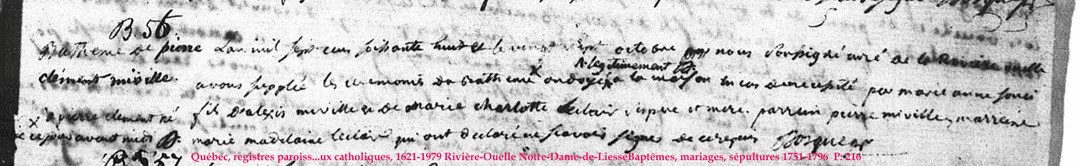 B 56.
Batheme de pierre L'an mil sept cens soisante huit et le vingt sept octobre nous soussigné curé de la Riviere ouelle
clément miville. avons supplié les ceremonies du Batheme x ondoyé a la maison en cas de necessité par marie anne
& legitimement
x a pierre clement né fils d'alexis miville et de marie charlotte leclair, ses pere et mere. parrein pierre miville, marreine
ce jour avant midi marie madelaine leclair qui ont declaré ne sçavoir signer de ce requis
B 57
Québec, registres paroiss...ux catholiques, 1621-1979 Rivière-Ouelle Notre-Dame-de-LiesseBaptêmes, mariages, sépultures 1751-1796 P: 216